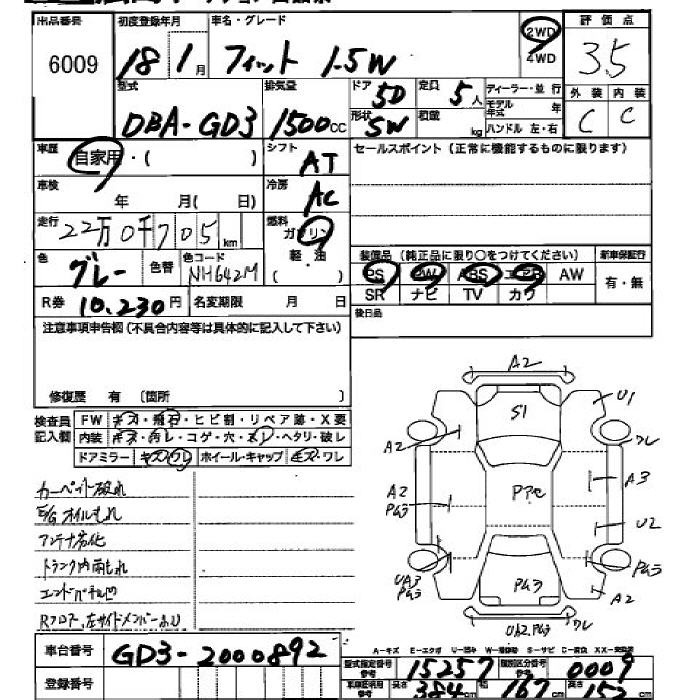 出品番号 初度登録年月 車名・グレード 2WD 4WD 評価点
6009 18 1月 フィット 1.5W 3.5
型式 排気量 ドア 5D 定員 5人 ディーラー・並行 外装 内装
DBA-GD3 1500cc 形状 SW 積載 kg モデル年式 年 C C
ハンドル 左・右
車歴 自家用・( ) シフト AT セールスポイント(正常に機能するものに限ります)
車検 年 月( 日) 冷房 AC
走行 22万0千705km 燃料 ガソリン
軽・油
( )
色 グレー 色替 色コード NH642M 装備品(純正品に限り○をつけてください) 新車保証行
PS PW ABS エアB AW 有・無
R券 10,230円 名変期限 月 日 SR ナビ TV カワ
注意事項申告欄(不具合内容等は具体的に記入して下さい) 後日品
修復歴 有 〔箇所 〕
検査員記入欄 FW キズ・飛石・ヒビ割・リペア跡・X要
内装 キズ・汚レ・コゲ・穴・スレ・ヘタリ・破レ
ドアミラー キズ・ワレ ホイール・キャップ キズ・ワレ
カーペット破れ
E/Gオイルもれ
アンテナ劣化
トランク内雨もれ
エンドパネル凹
Rフロア、左サイドメンバーあり
A2
S1 U1
A2 ワレ
A2 PG3 A3
U2
UA3 PG3 PG3 PG3
A2
ワレ
A-キズ E-エクボ U-凹み
車台番号 GD3-2000892 型式指定番号 15257 類別区分番号 0009
登録番号 長さ 384cm 幅 167cm 高さ 152cm